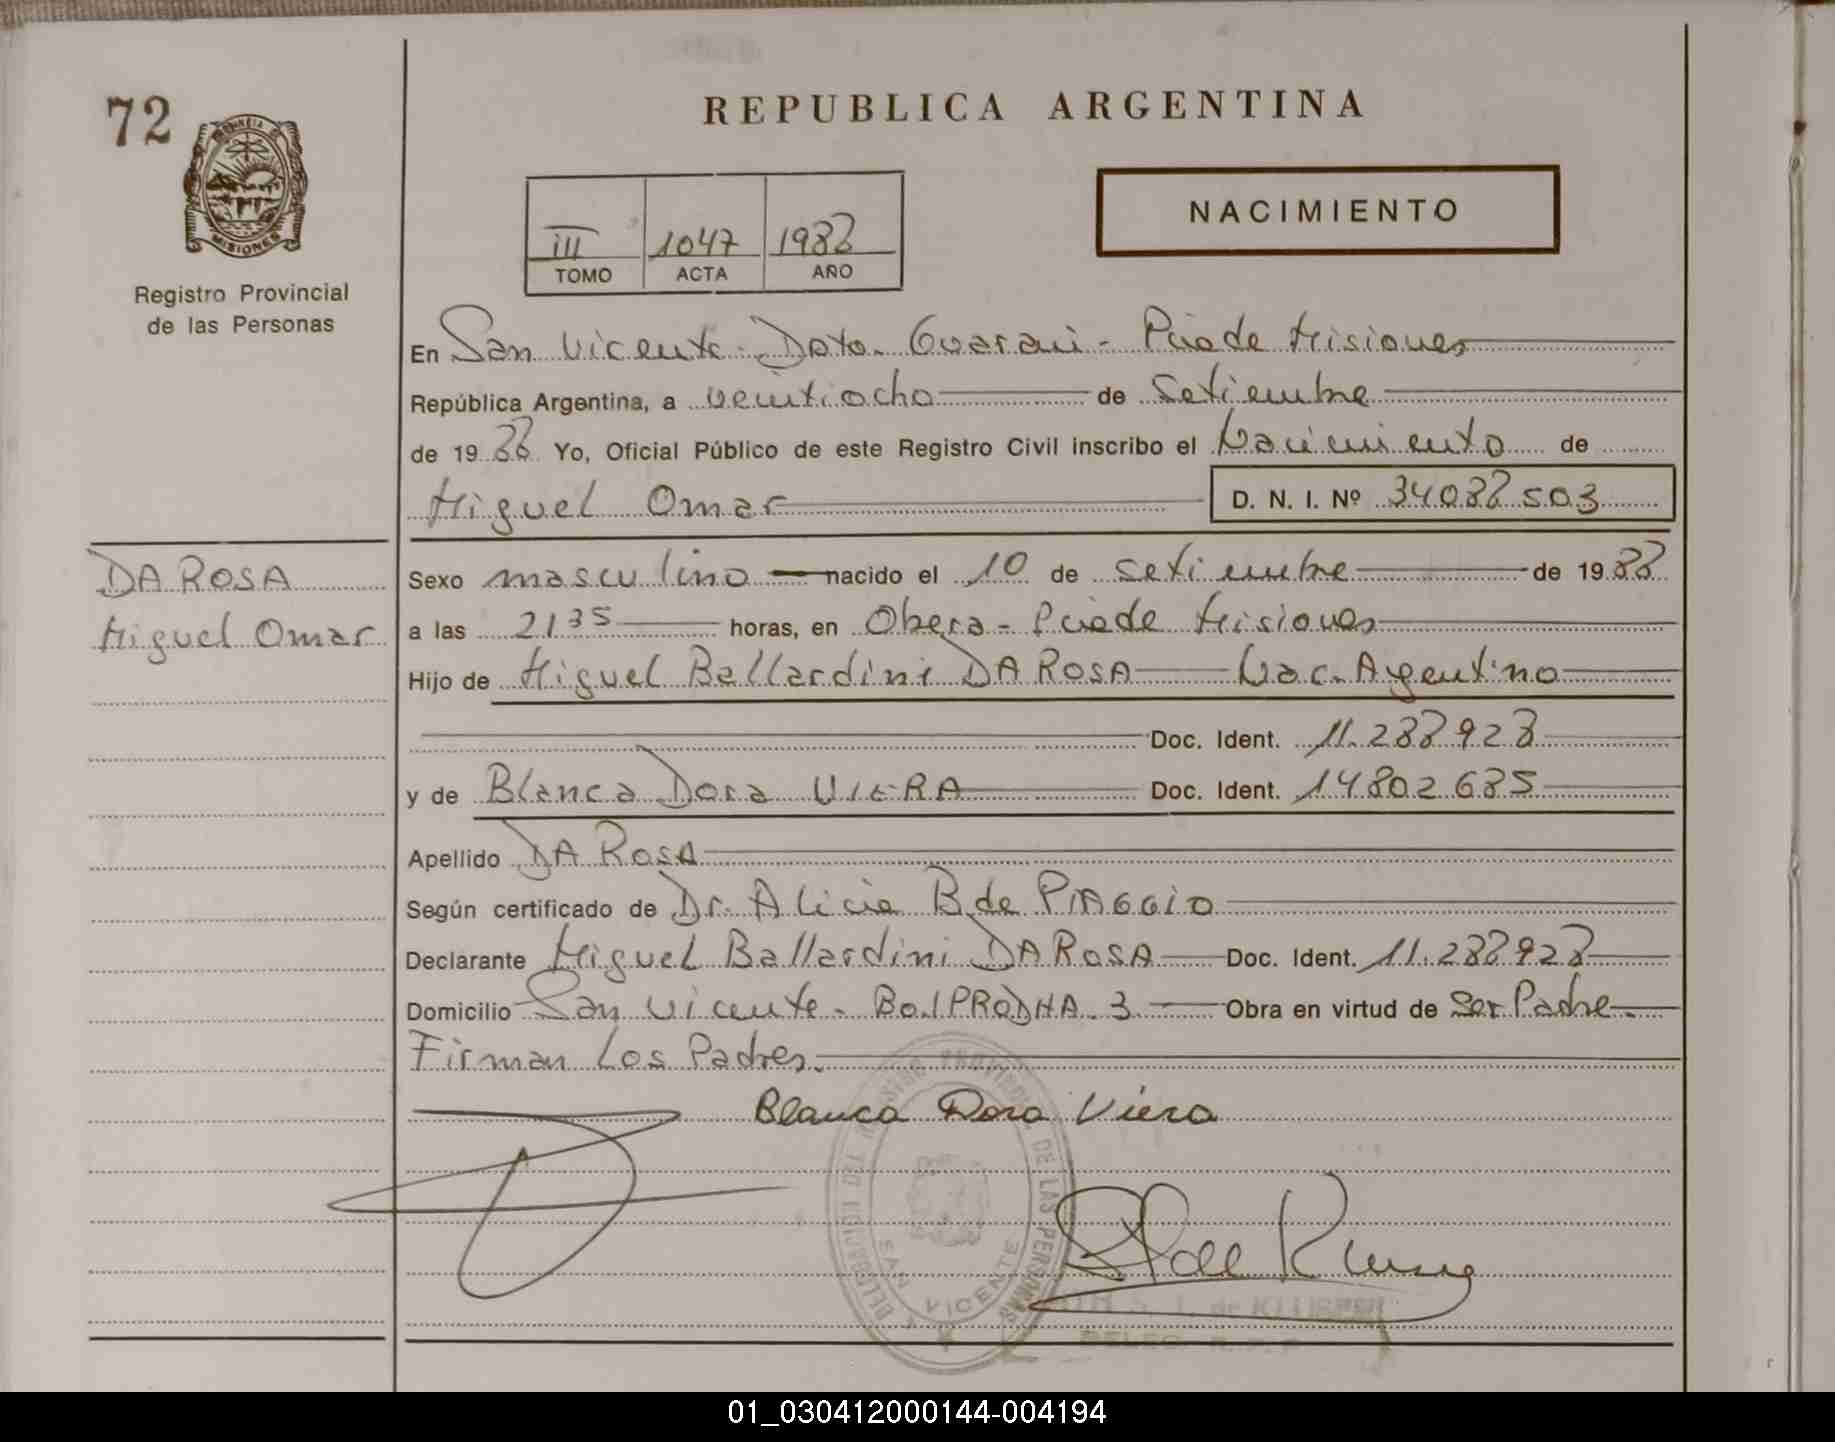 72
REPUBLICA ARGENTINA
PROVINCIA DE
MISIONES
Registro Provincial
de las Personas
III 1047 1988
TOMO ACTA AÑO
NACIMIENTO
En San Vicente - Dpto. Guarani - Pciade Misiones
República Argentina, a veintiocho de Setiembre
de 1988 Yo, Oficial Público de este Registro Civil inscribo el Nacimiento de
Miguel Omar D. N. I. Nº 34088503
DA ROSA
Miguel Omar
Sexo masculino nacido el 10 de setiembre de 1988
a las 21 35 horas, en Obera - Pciade Misiones
Hijo de Miguel Ballardini DA ROSA Nac. Argentino
Doc. Ident. 11.288928
y de Blanca Dora VIERA Doc. Ident. 14802685
Apellido DA ROSA
Según certificado de Dr. Alicia B de PIAGGIO
Declarante Miguel Ballardini DA ROSA Doc. Ident. 11.288928
Domicilio San Vicente - Bo. IPRODHA. 3 Obra en virtud de Ser Padre.
Firman Los Padres.
Blanca Dora Viera
DELEGACION DEL REGISTRO PROVINCIAL DE LAS PERSONAS
SAN VICENTE
S. I. de
DELEG. R. P. P.
01_030412000144-004194